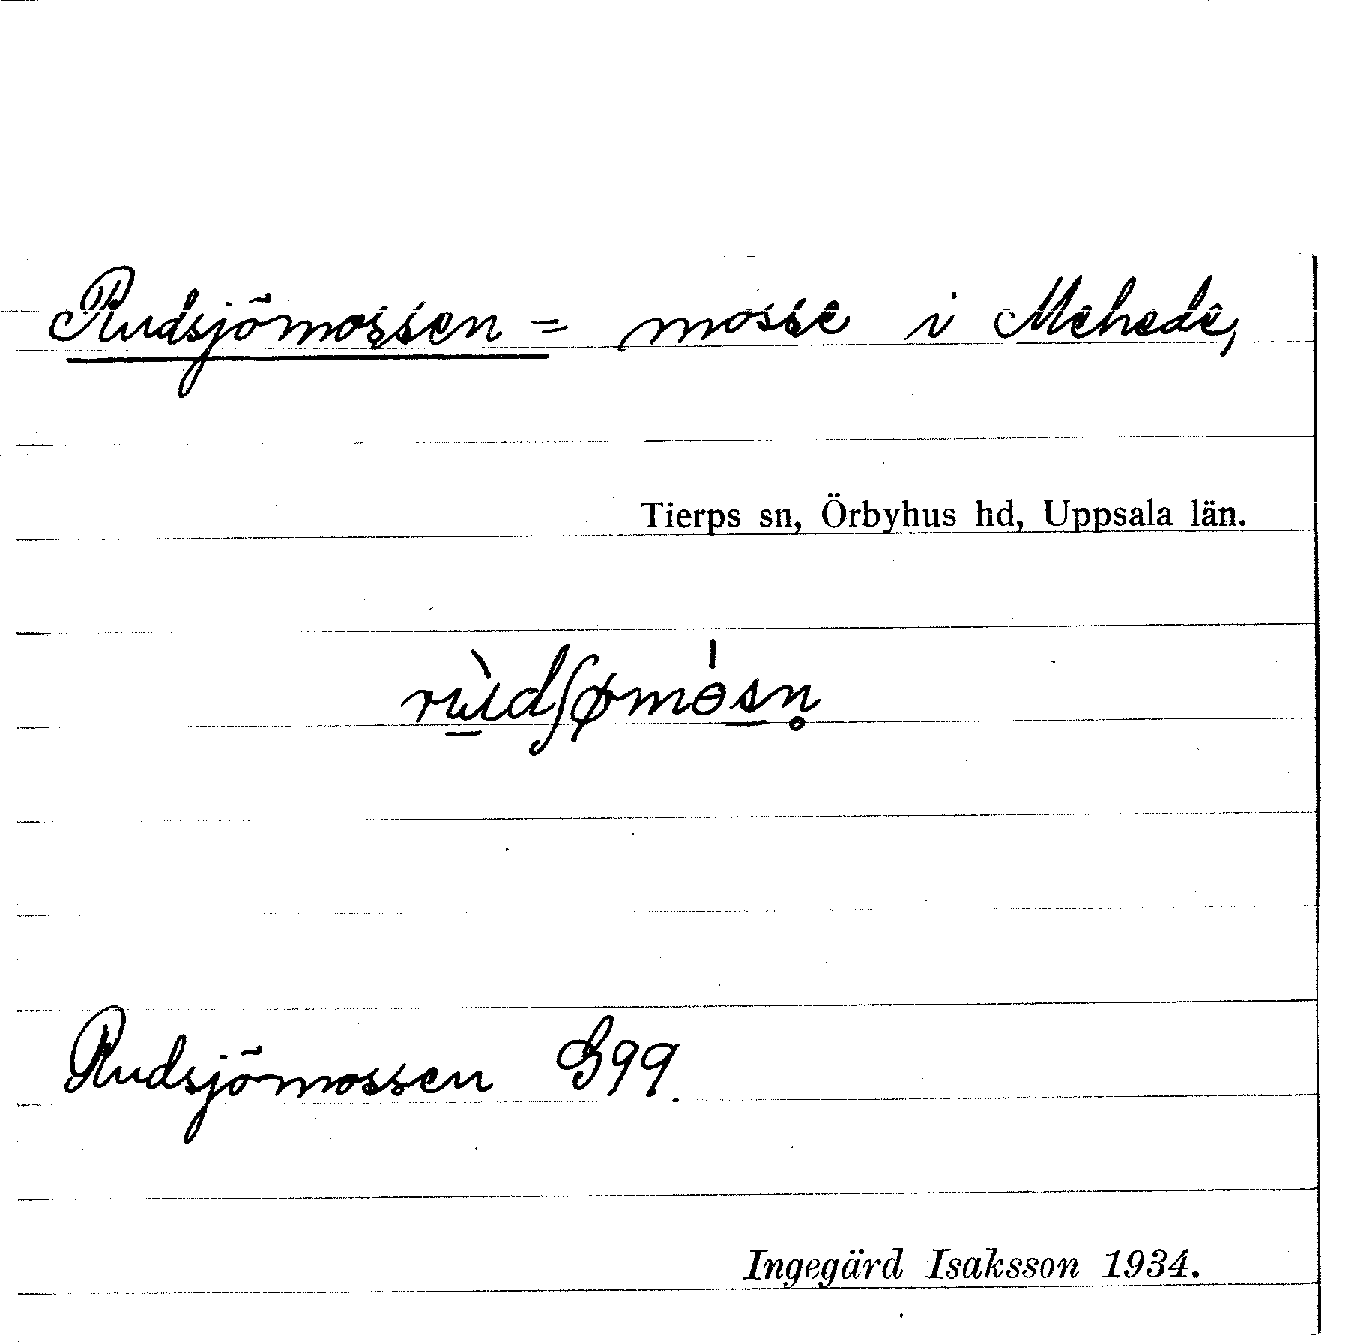 Rudsjömossen = mosse i Mehede,
Tierps sn, Örbyhus hd, Uppsala län.
rùdʃømɵ́sn̥
Rudsjömossen G99.
Ingegärd Isaksson 1934.